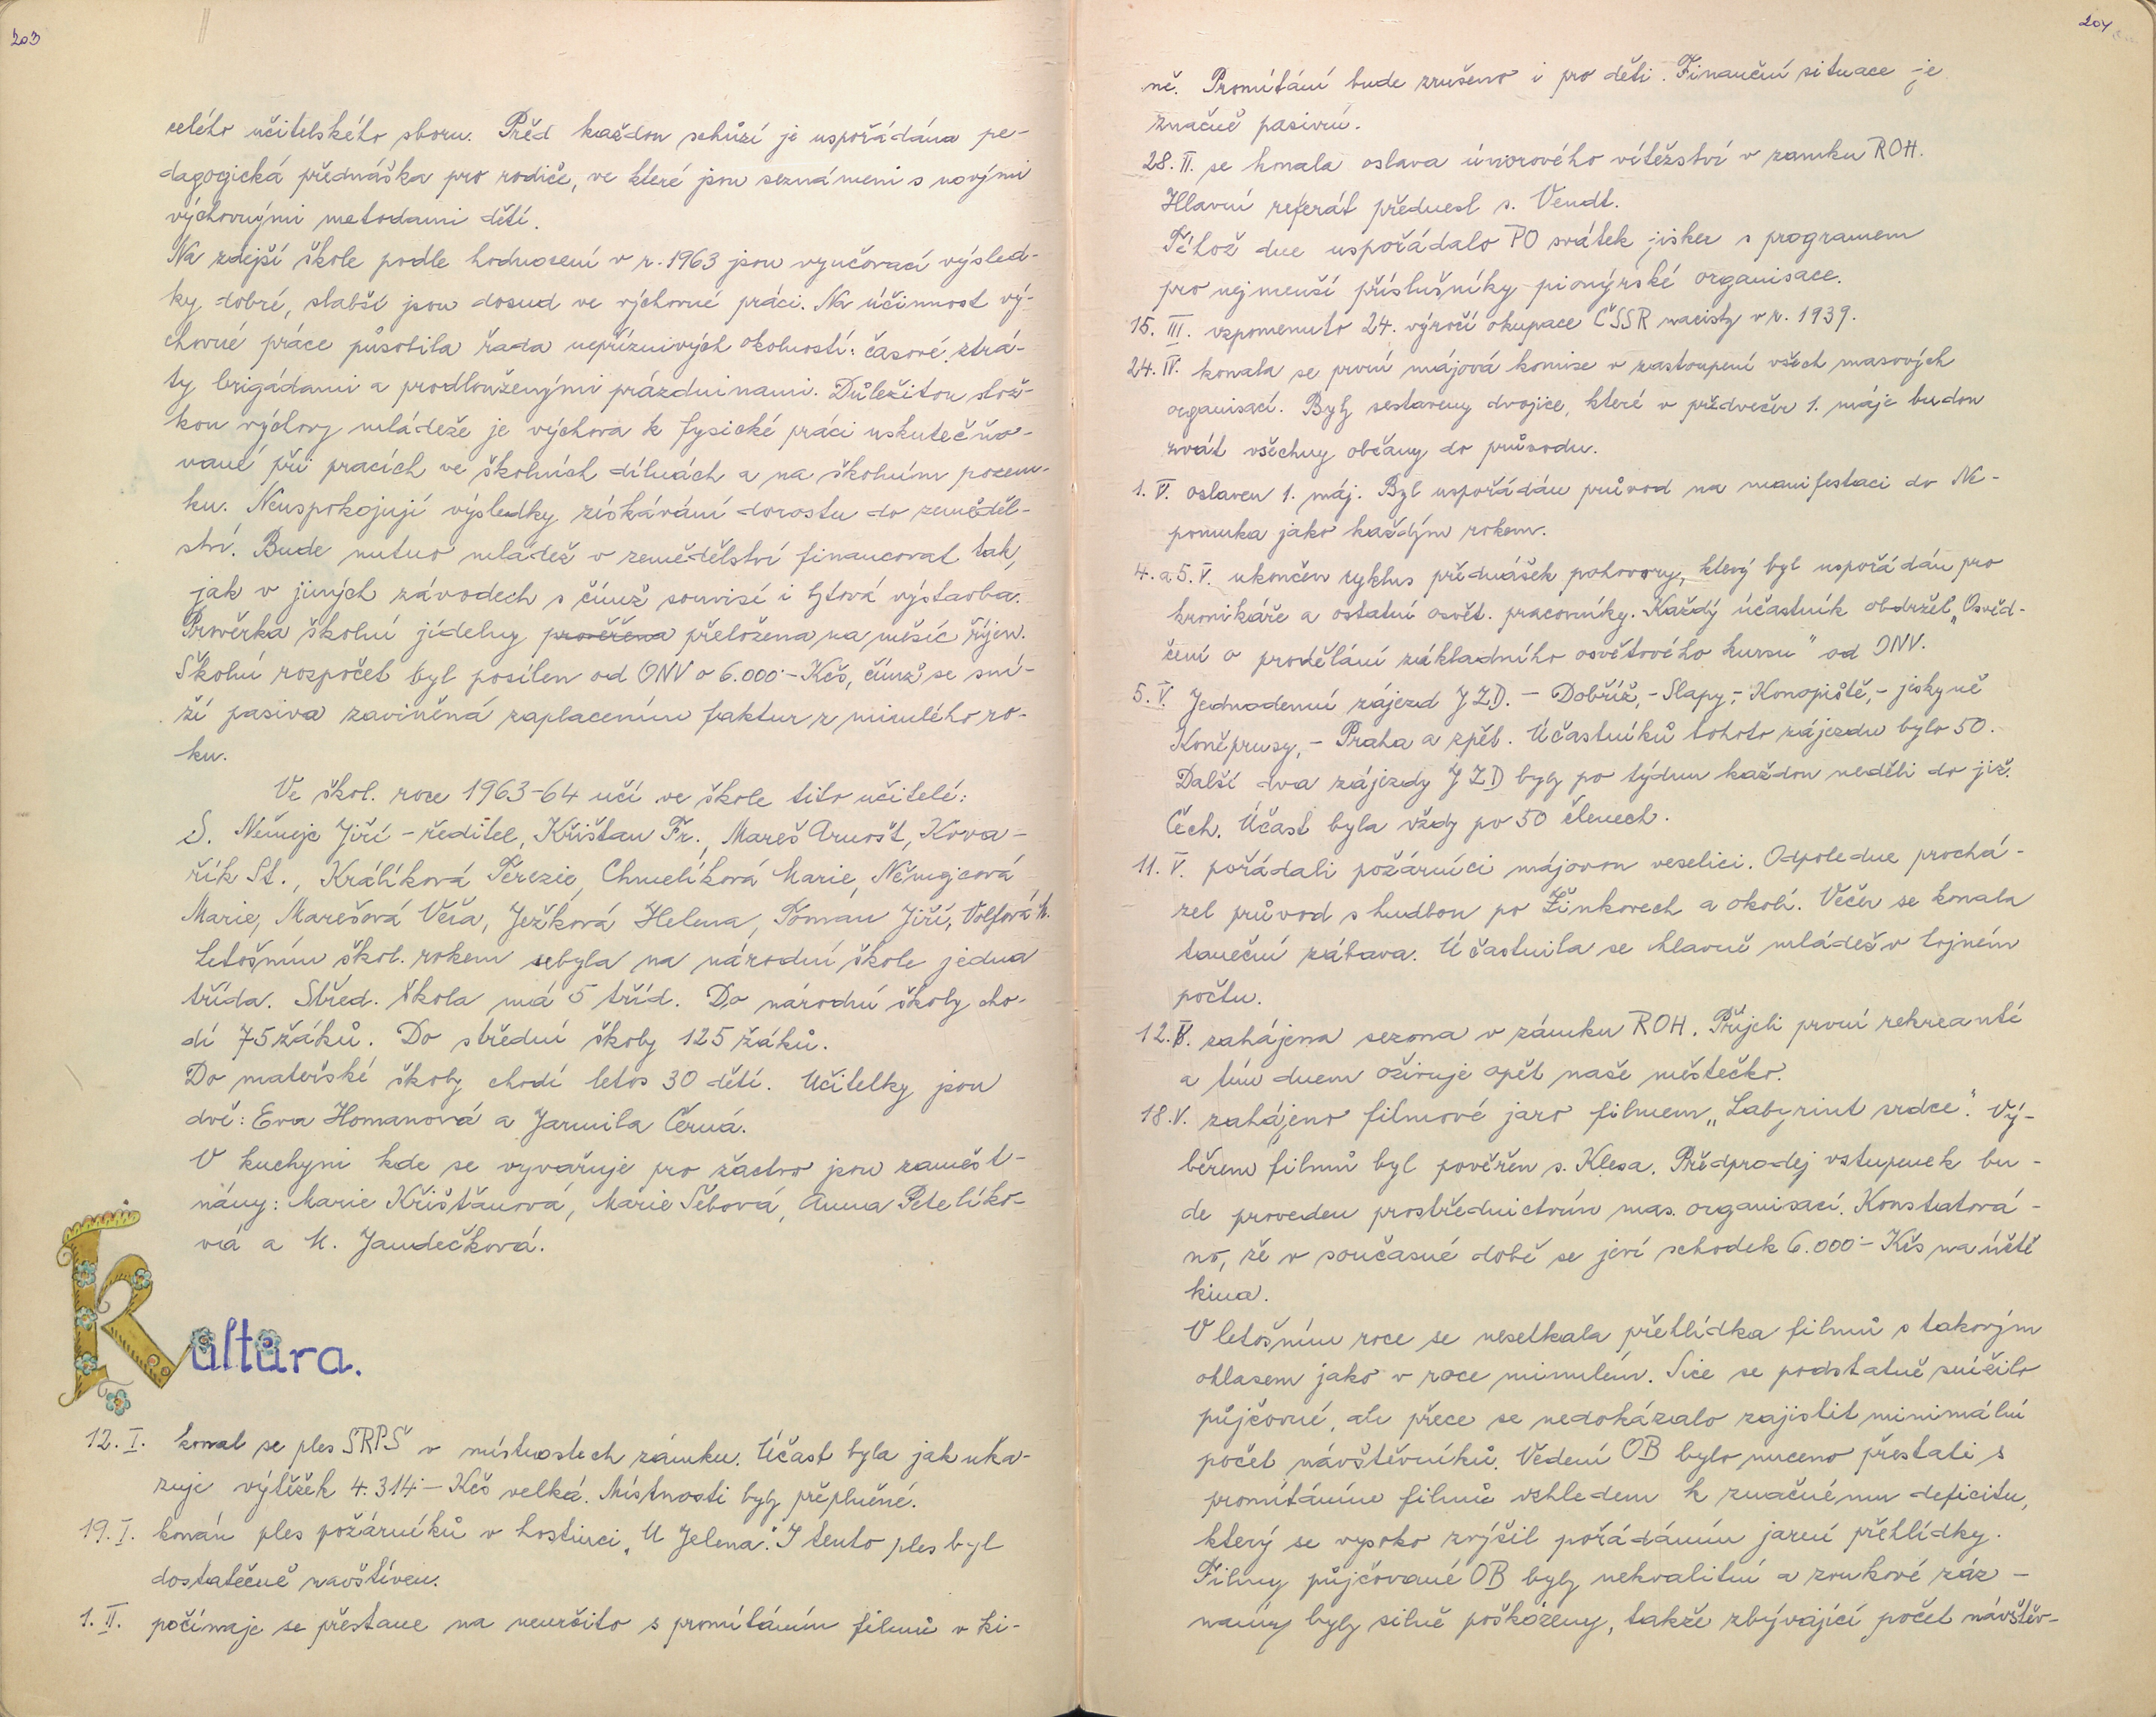 203
celého učitelského sboru. Před každou schůzí je uspořádána pe-
dagogická přednáška pro rodiče, ve které jsou seznámeni s novými
výchovnými metodami dětí.
Na zdejší škole podle hodnocení v r. 1963 jsou vyučovací výsled-
ky dobré, slabší jsou dosud ve výchovné práci. Na účinnost vý-
chovné práce působila řada nepříznivých okolností: časové ztrá-
ty brigádami a prodlouženými prázdninami. Důležitou slož-
kou výchovy mládeže je výchova k fysické práci uskutečňo-
vané při pracích ve školních dílnách a na školním pozem-
ku. Neuspokojují výsledky získávání dorostu do zeměděl-
ství. Bude nutno mládež v zemědělství financovat tak,
jak v jiných závodech s čímž souvisí i bytová výstavba.
Prověrka školní jídelny prověřena přeložena na měsíc říjen.
Školní rozpočet byl posílen od ONV o 6.000·- Kčs, čímž se sní-
ží pasiva zaviněná zaplacením faktur z minulého ro-
ku.
Ve škol. roce 1963-64 učí ve škole tito učitelé:
S. Němejc Jiří - ředitel, Křišťan Fr., Mareš Arnošt, Kova-
řík St., Králíková Terezie, Chmelíková Marie, Němejcová
Marie, Marešová Věra, Ježková Helena, Toman Jiří, Volfová M.
Letošním škol. rokem ubyla na národní škole jedna
třída. Střed. škola má 5 tříd. Do národní školy cho-
dí 75 žáků. Do střední školy 125 žáků.
Do mateřské školy chodí letos 30 dětí. Učitelky jsou
dvě: Eva Homanová a Jarmila Černá.
V kuchyni kde se vyvařuje pro žactvo jsou zaměst-
nány: Marie Křišťanová, Marie Šebová, Anna Petelíko-
vá a M. Jandečková.
Kultura.
12. I. konal se ples SRPŠ v místnostech zámku. Účast byla jak uka-
zuje výtěžek 4.314·- Kčs velká. Místnosti byly přeplněné.
19. I. konán ples požárníků v hostinci „U Jelena". I tento ples byl
dostatečně navštíven.
1. II. počínaje se přestane na neurčito s promítáním filmů v ki-
204
ně. Promítání bude zrušeno i pro děti. Finanční situace je
značně pasivní.
28. II. se konala oslava únorového vítězství v zámku ROH.
Hlavní referát přednesl s. Vendt.
Téhož dne uspořádalo PO svátek jisker s programem
pro nejmenší příslušníky pionýrské organisace.
15. III. vzpomenuto 24. výročí okupace ČSSR nacisty v r. 1939.
24. IV. konala se první májová komise v zastoupení všech masových
organisací. Byly sestaveny dvojice, které v předvečer 1. máje budou
zvát všechny občany do průvodu.
1. V. oslaven 1. máj. Byl uspořádán průvod na manifestaci do Ne-
pomuka jako každým rokem.
4. a 5. V. ukončen cyklus přednášek pohovory, který byl uspořádán pro
kronikáře a ostatní osvět. pracovníky. Každý účastník obdržel „Osvěd-
čení o prodělání základního osvětového kursu" od ONV.
5. V. Jednodenní zájezd JZD. - Dobříš, - Slapy, - Konopiště, - jeskyně
Koněprusy, - Praha a zpět. Účastníků tohoto zájezdu bylo 50.
Další dva zájezdy JZD byly po týdnu každou neděli do již.
Čech. Účast byla vždy po 50 členech.
11. V. pořádali požárníci májovou veselici. Odpoledne prochá-
zel průvod s hudbou po Žinkovech a okolí. Večer se konala
taneční zábava. Účastnila se hlavně mládež v hojném
počtu.
12. V. zahájena sezona v zámku ROH. Přijeli první rekreanté
a tím dnem oživuje opět naše městečko.
18. V. zahájeno filmové jaro filmem „Labyrint srdce". Vý-
běrem filmů byl pověřen s. Klesa. Předprodej vstupenek bu-
de proveden prostřednictvím mas. organisací. Konstatová-
no, že v současné době se jeví schodek 6.000·- Kčs na účtě
kina.
V letošním roce se nesetkala přehlídka filmů s takovým
ohlasem jako v roce minulém. Sice se podstatně snížilo
půjčovné, ale přece se nedokázalo zajistit minimální
počet návštěvníků. Vedení OB bylo nuceno přestati s
promítáním filmů vzhledem k značnému deficitu,
který se vysoko zvýšil pořádáním jarní přehlídky.
Filmy půjčované OB byly nekvalitní a zvukové záz-
namy byly silně poškozeny, takže zbývající počet návštěv-